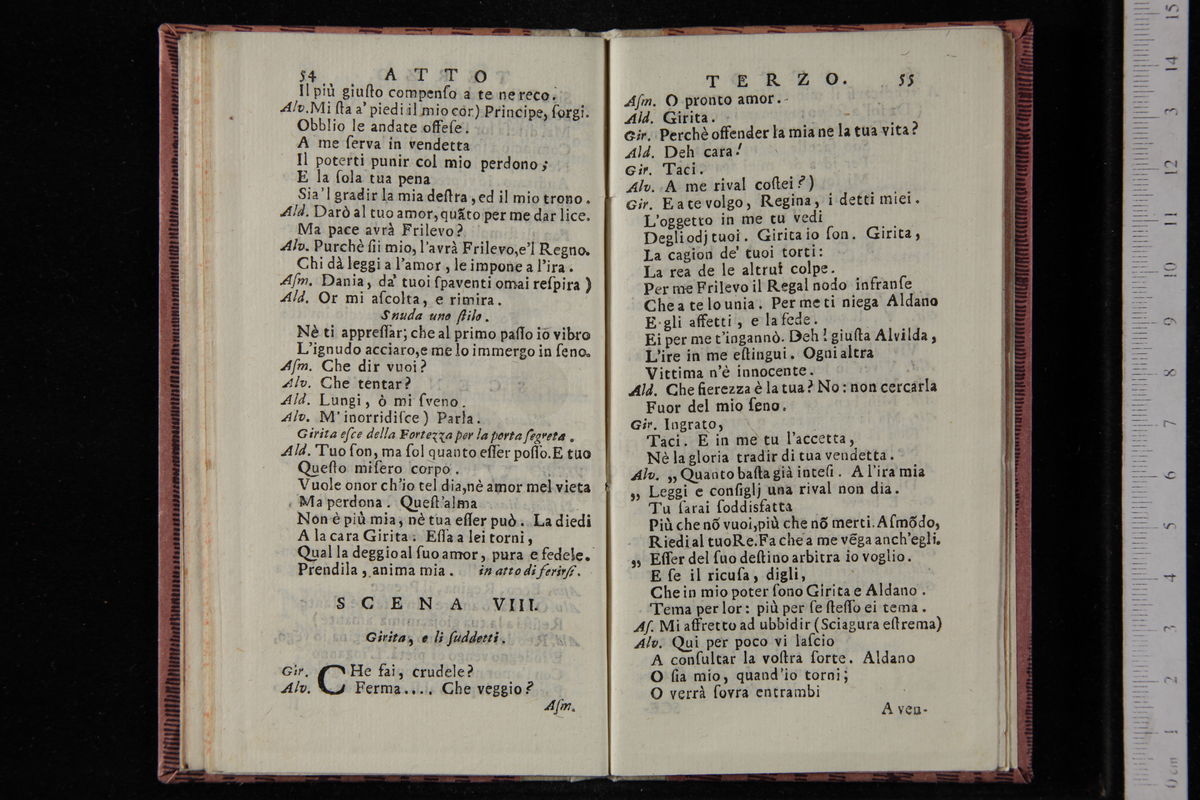 54 ATTO
Il più giuſto compenſo a te ne reco.
Alv. Mi ſta a' piedi il mio cor) Principe, ſorgi.
Obblio le andate offeſe.
A me ſerva in vendetta
Il poterti punir col mio perdono;
E la ſola tua pena
Sia 'l gradir la mia deſtra, ed il mio trono.
Ald. Darò al tuo amor, quãto per me dar lice.
Ma pace avrà Frilevo?
Alv. Purchè ſii mio, l'avrà Frilevo, e 'l Regno.
Chi dà leggi a l'amor, le impone a l'ira.
Aſm. Dania, da' tuoi ſpaventi omai reſpira )
Ald. Or mi aſcolta, e rimira.
Snuda uno ſtilo.
Nè ti appreſſar; che al primo paſſo io vibro
L'ignudo acciaro, e me lo immergo in ſeno.
Aſm. Che dir vuoi?
Alv. Che tentar?
Ald. Lungi, ò mi ſveno.
Alv. M'inorridiſce) Parla.
Girita eſce della Fortezza per la porta ſegreta.
Ald. Tuo ſon, ma ſol quanto eſſer poſſo. E tuo
Queſto miſero corpo.
Vuole onor ch'io tel dia, nè amor mel vieta
Ma perdona. Queſt'alma
Non è più mia, nè tua eſſer può. La diedi
A la cara Girita. Eſſa a lei torni,
Qual la deggio al ſuo amor, pura e fedele.
Prendila, anima mia. in atto di ferirſi.
SCENA VIII.
Girita, e li ſuddetti.
Gir. CHe fai, crudele?
Alv. Ferma.... Che veggio?
Aſm.
TERZO. 55
Aſm. O pronto amor.
Ald. Girita.
Gir. Perchè offender la mia ne la tua vita?
Ald. Deh cara!
Gir. Taci.
Alv. A me rival coſtei?)
Gir. E a te volgo, Regina, i detti miei.
L'oggetto in me tu vedi
Degli odj tuoi. Girita io ſon. Girita,
La cagion de' tuoi torti:
La rea de le altrui colpe.
Per me Frilevo il Regal nodo infranſe
Che a te lo unia. Per me ti niega Aldano
E gli affetti, e la fede.
Ei per me t'ingannò. Deh! giuſta Alvilda,
L'ire in me eſtingui. Ogni altra
Vittima n'è innocente.
Ald. Che fierezza è la tua? No: non cercarla
Fuor del mio ſeno.
Gir. Ingrato,
Taci. E in me tu l'accetta,
Nè la gloria tradir di tua vendetta.
Alv. „ Quanto baſta già inteſi. A l'ira mia
„ Leggi e conſiglj una rival non dia.
Tu ſarai ſoddisfatta
Più che nõ vuoi, più che nõ merti. Aſmõdo,
Riedi al tuo Re. Fa che a me vẽga anch'egli.
„ Eſſer del ſuo deſtino arbitra io voglio.
E ſe il ricuſa, digli,
Che in mio poter ſono Girita e Aldano.
Tema per lor: più per ſe ſteſſo ei tema.
Aſ. Mi affretto ad ubbidir (Sciagura eſtrema)
Alv. Qui per poco vi laſcio
A conſultar la voſtra ſorte. Aldano
O ſia mio, quand'io torni;
O verrà ſovra entrambi
A ven-